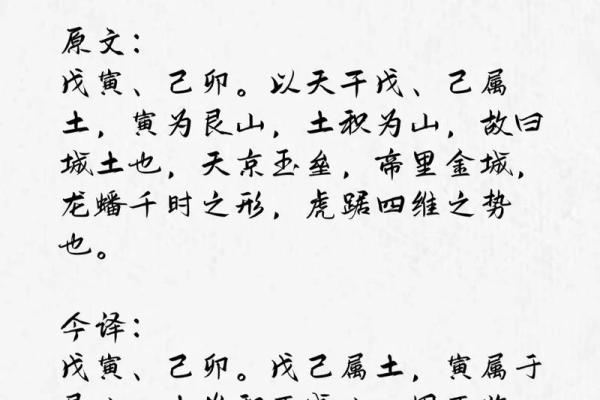 原文：
戊寅、己卯。以天干戊、己属
土，寅为艮山，土积为山，故曰
城土也，天京玉垒，帝里金城，
龙蟠千时之形，虎踞四维之势
也。
今译：
戊寅、己卯。戊己属土，寅属于